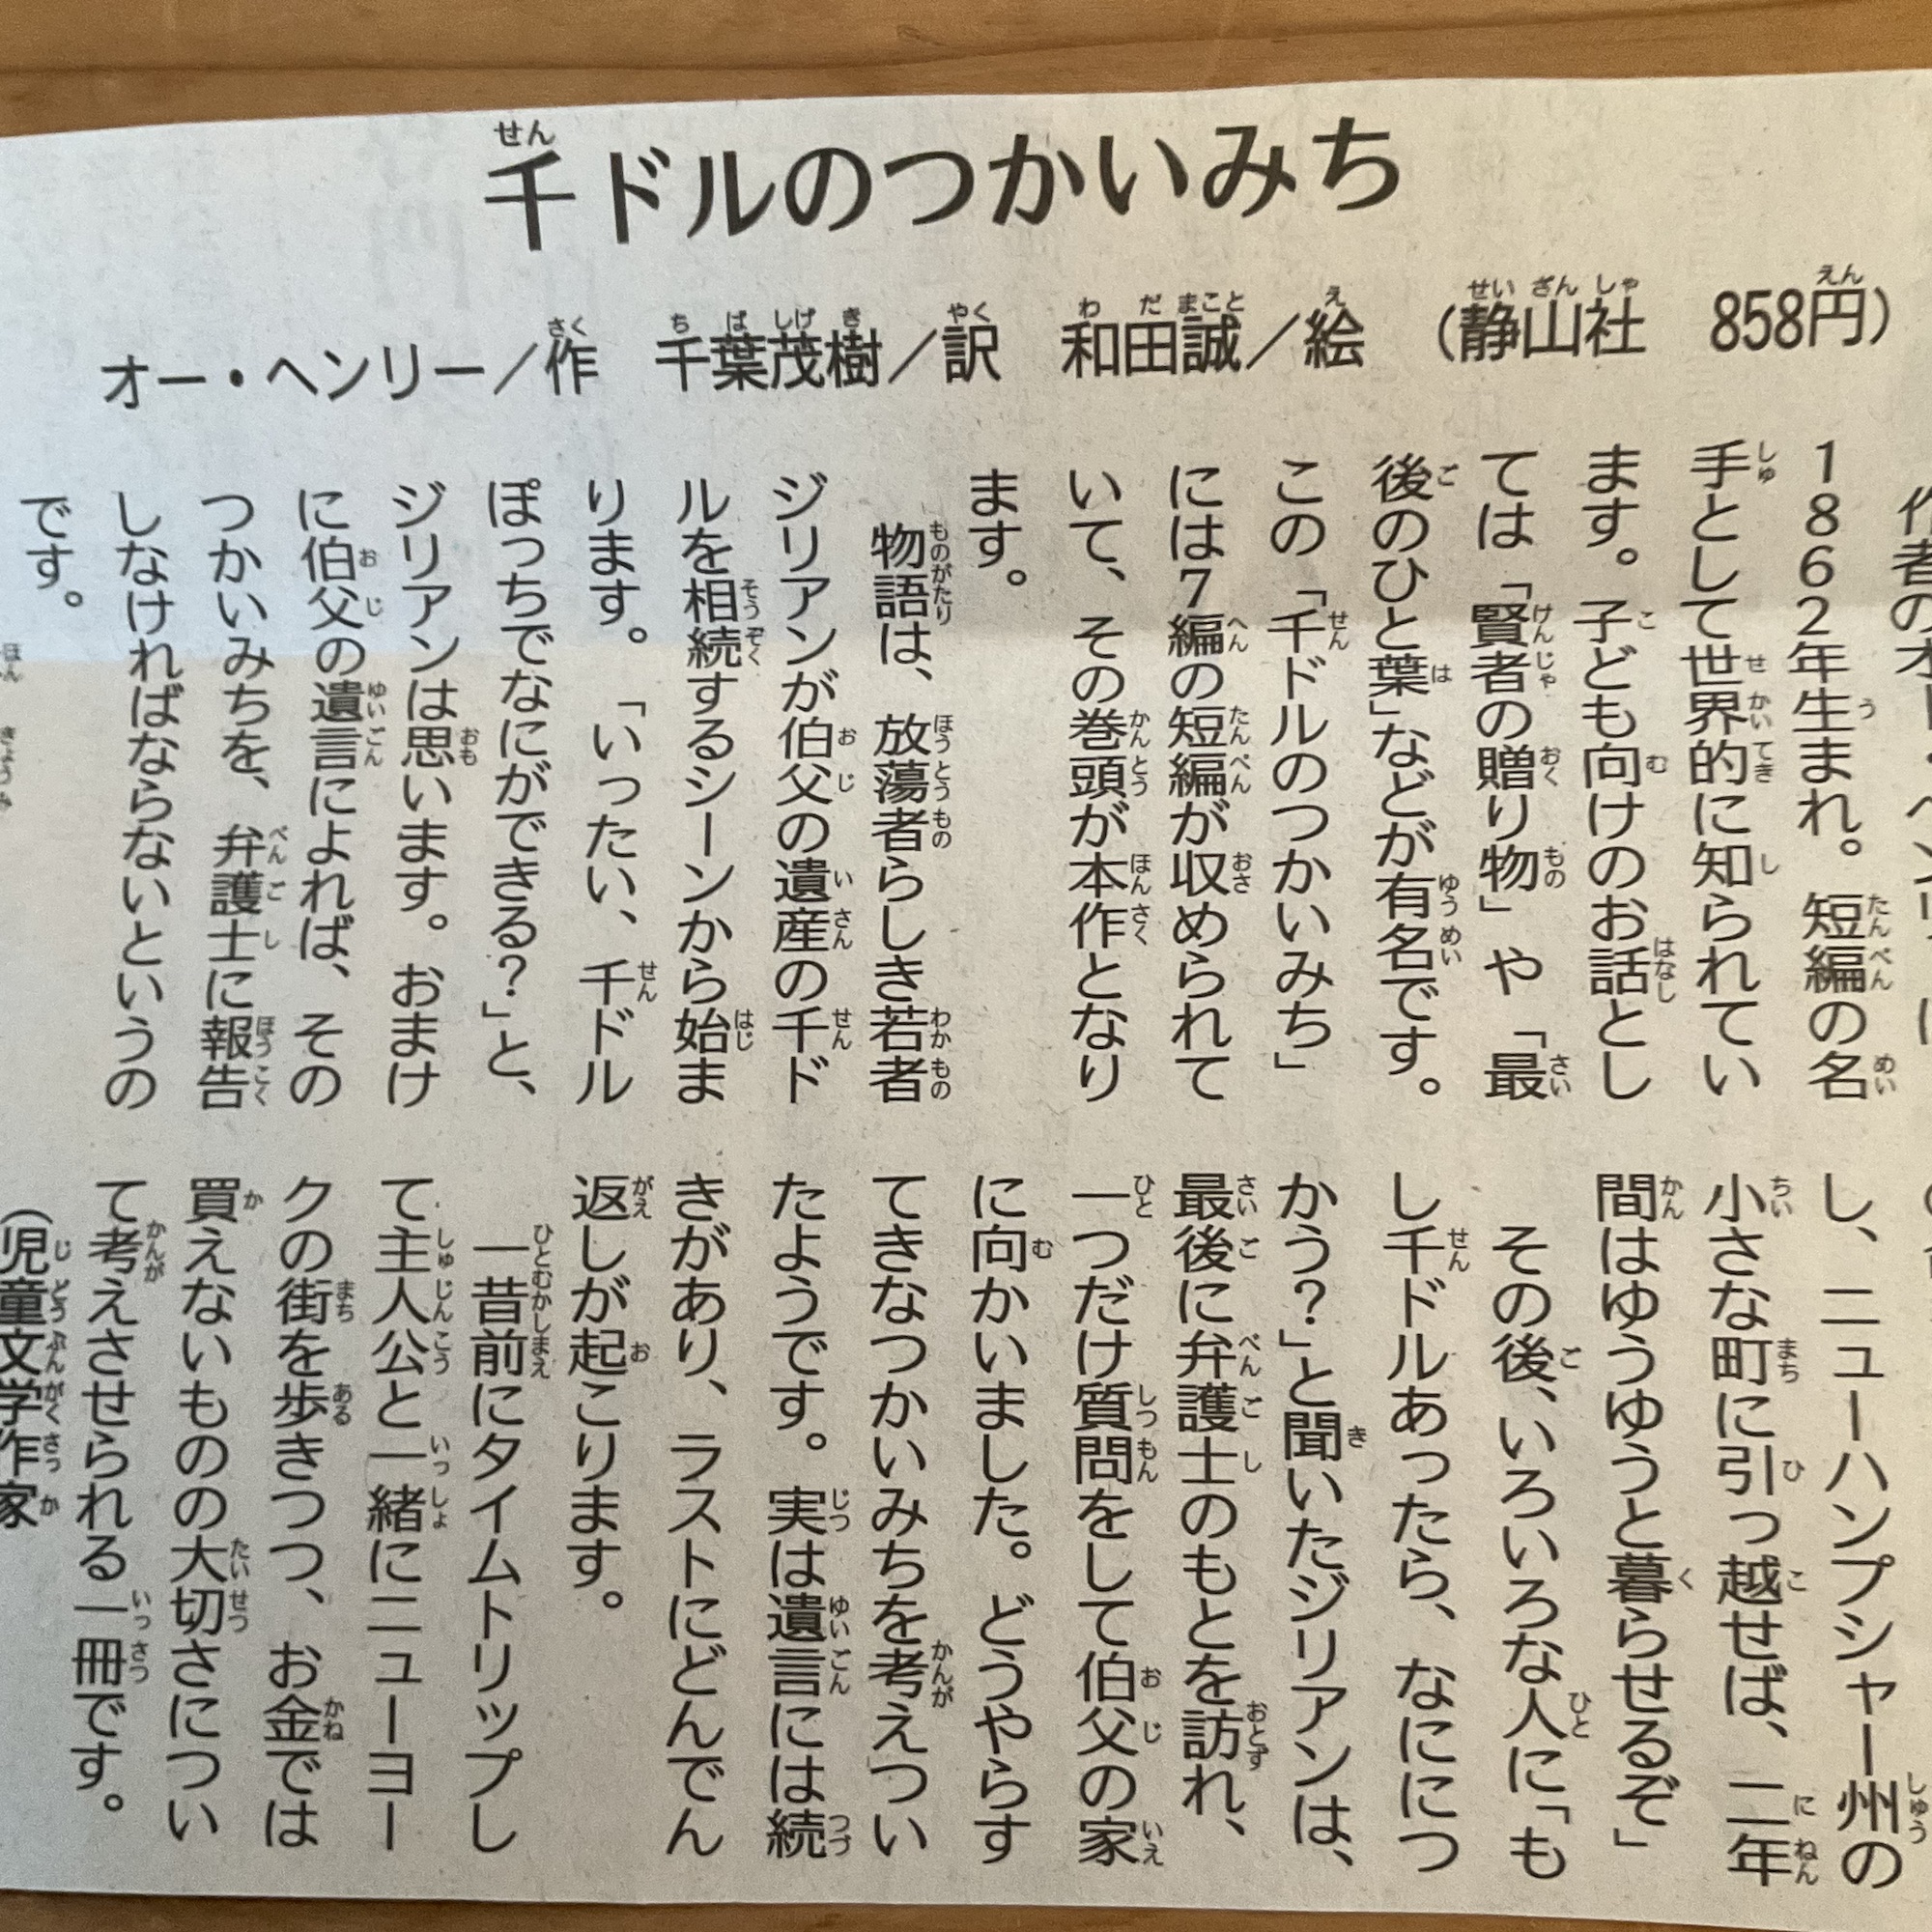 千ドルのつかいみち
オー・ヘンリー／作　千葉茂樹／訳　和田誠／絵　（静山社　858円）
作者のオー・ヘンリーは
1862年生まれ。短編の名
手として世界的に知られてい
ます。子ども向けのお話とし
ては「賢者の贈り物」や「最
後のひと葉」などが有名です。
この「千ドルのつかいみち」
には7編の短編が収められて
いて、その巻頭が本作となり
ます。
物語は、放蕩者らしき若者
ジリアンが伯父の遺産の千ド
ルを相続するシーンから始ま
ります。「いったい、千ドル
ぽっちでなにができる？」と、
ジリアンは思います。おまけ
に伯父の遺言によれば、その
つかいみちを、弁護士に報告
しなければならないというの
です。
し、ニューハンプシャー州の
小さな町に引っ越せば、二年
間はゆうゆうと暮らせるぞ」
その後、いろいろな人に「も
し千ドルあったら、なににつ
かう？」と聞いたジリアンは、
最後に弁護士のもとを訪れ、
一つだけ質問をして伯父の家
に向かいました。どうやらす
てきなつかいみちを考えつい
たようです。実は遺言には続
きがあり、ラストにどんでん
返しが起こります。
一昔前にタイムトリップし
て主人公と一緒にニューヨー
クの街を歩きつつ、お金では
買えないものの大切さについ
て考えさせられる一冊です。
（児童文学作家